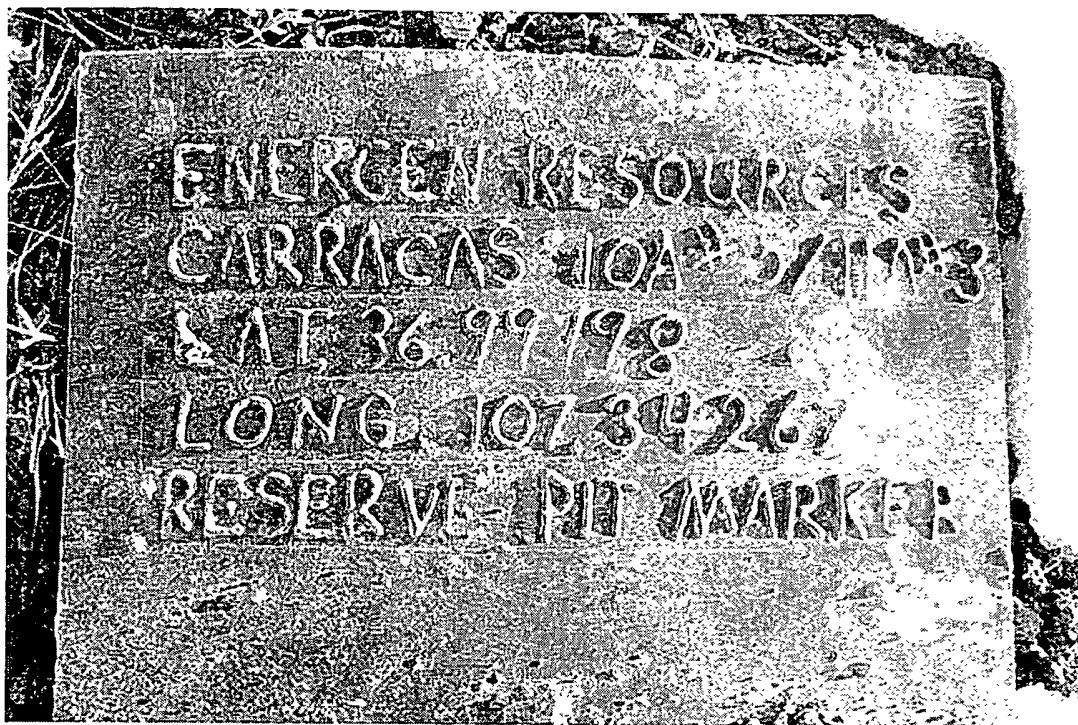 ENERGEN RESOURCES
CARRACAS 10A
LAT. 36.99198
LONG. 107.34267
RESERVE PIT MARKER